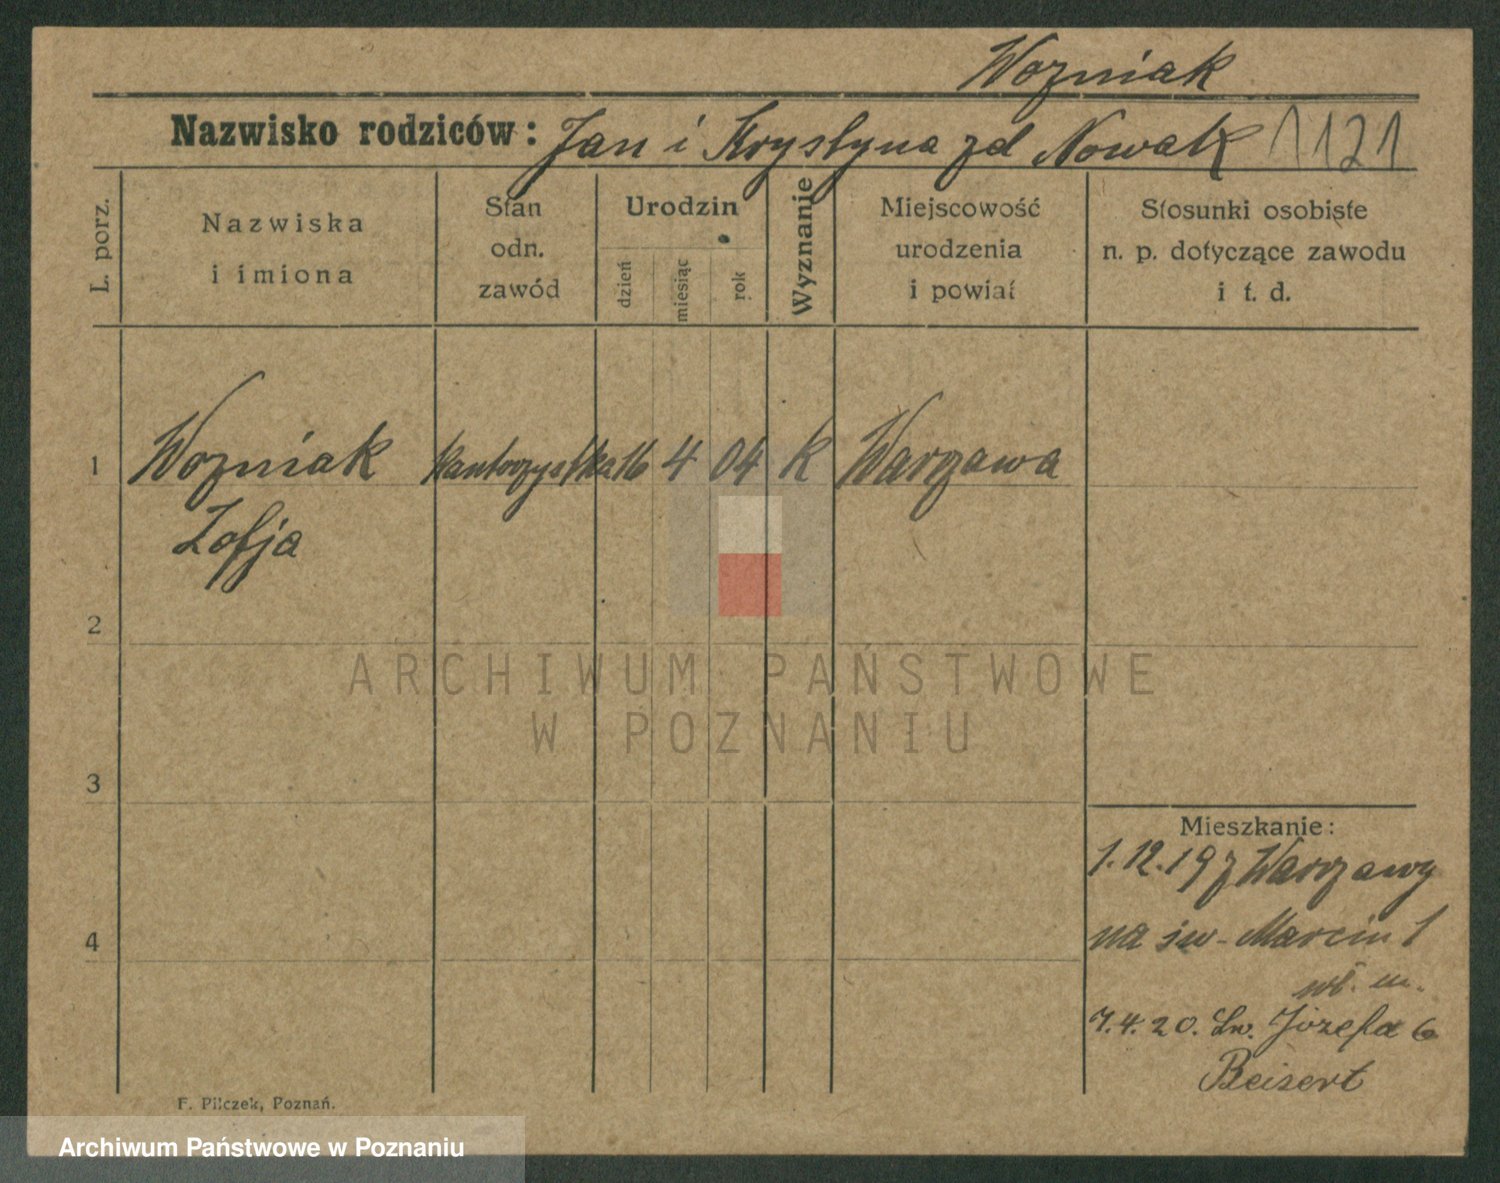 Wozniak
Nazwisko rodziców: Jan i Krystyna zd Nowak 1121
L. porz.
Nazwiska
i imiona
Stan
odn.
zawód
Urodzin
dzień
miesiąc
rok
Wyznanie
Miejscowość
urodzenia
i powiat
Stosunki osobiste
n. p. dotyczące zawodu
i t. d.
1 Wozniak kantorzystka 16 4 04 k Warzawa
Zofja
2
ARCHIWUM PAŃSTWOWE
W POZNANIU
3
Mieszkanie:
1.12.19 z Warzawy
4
na św. Marcin 1
wł. m.
7.4.20. Św. Józefa 6
Beisert
F. Pilczek, Poznań.
Archiwum Państwowe w Poznaniu